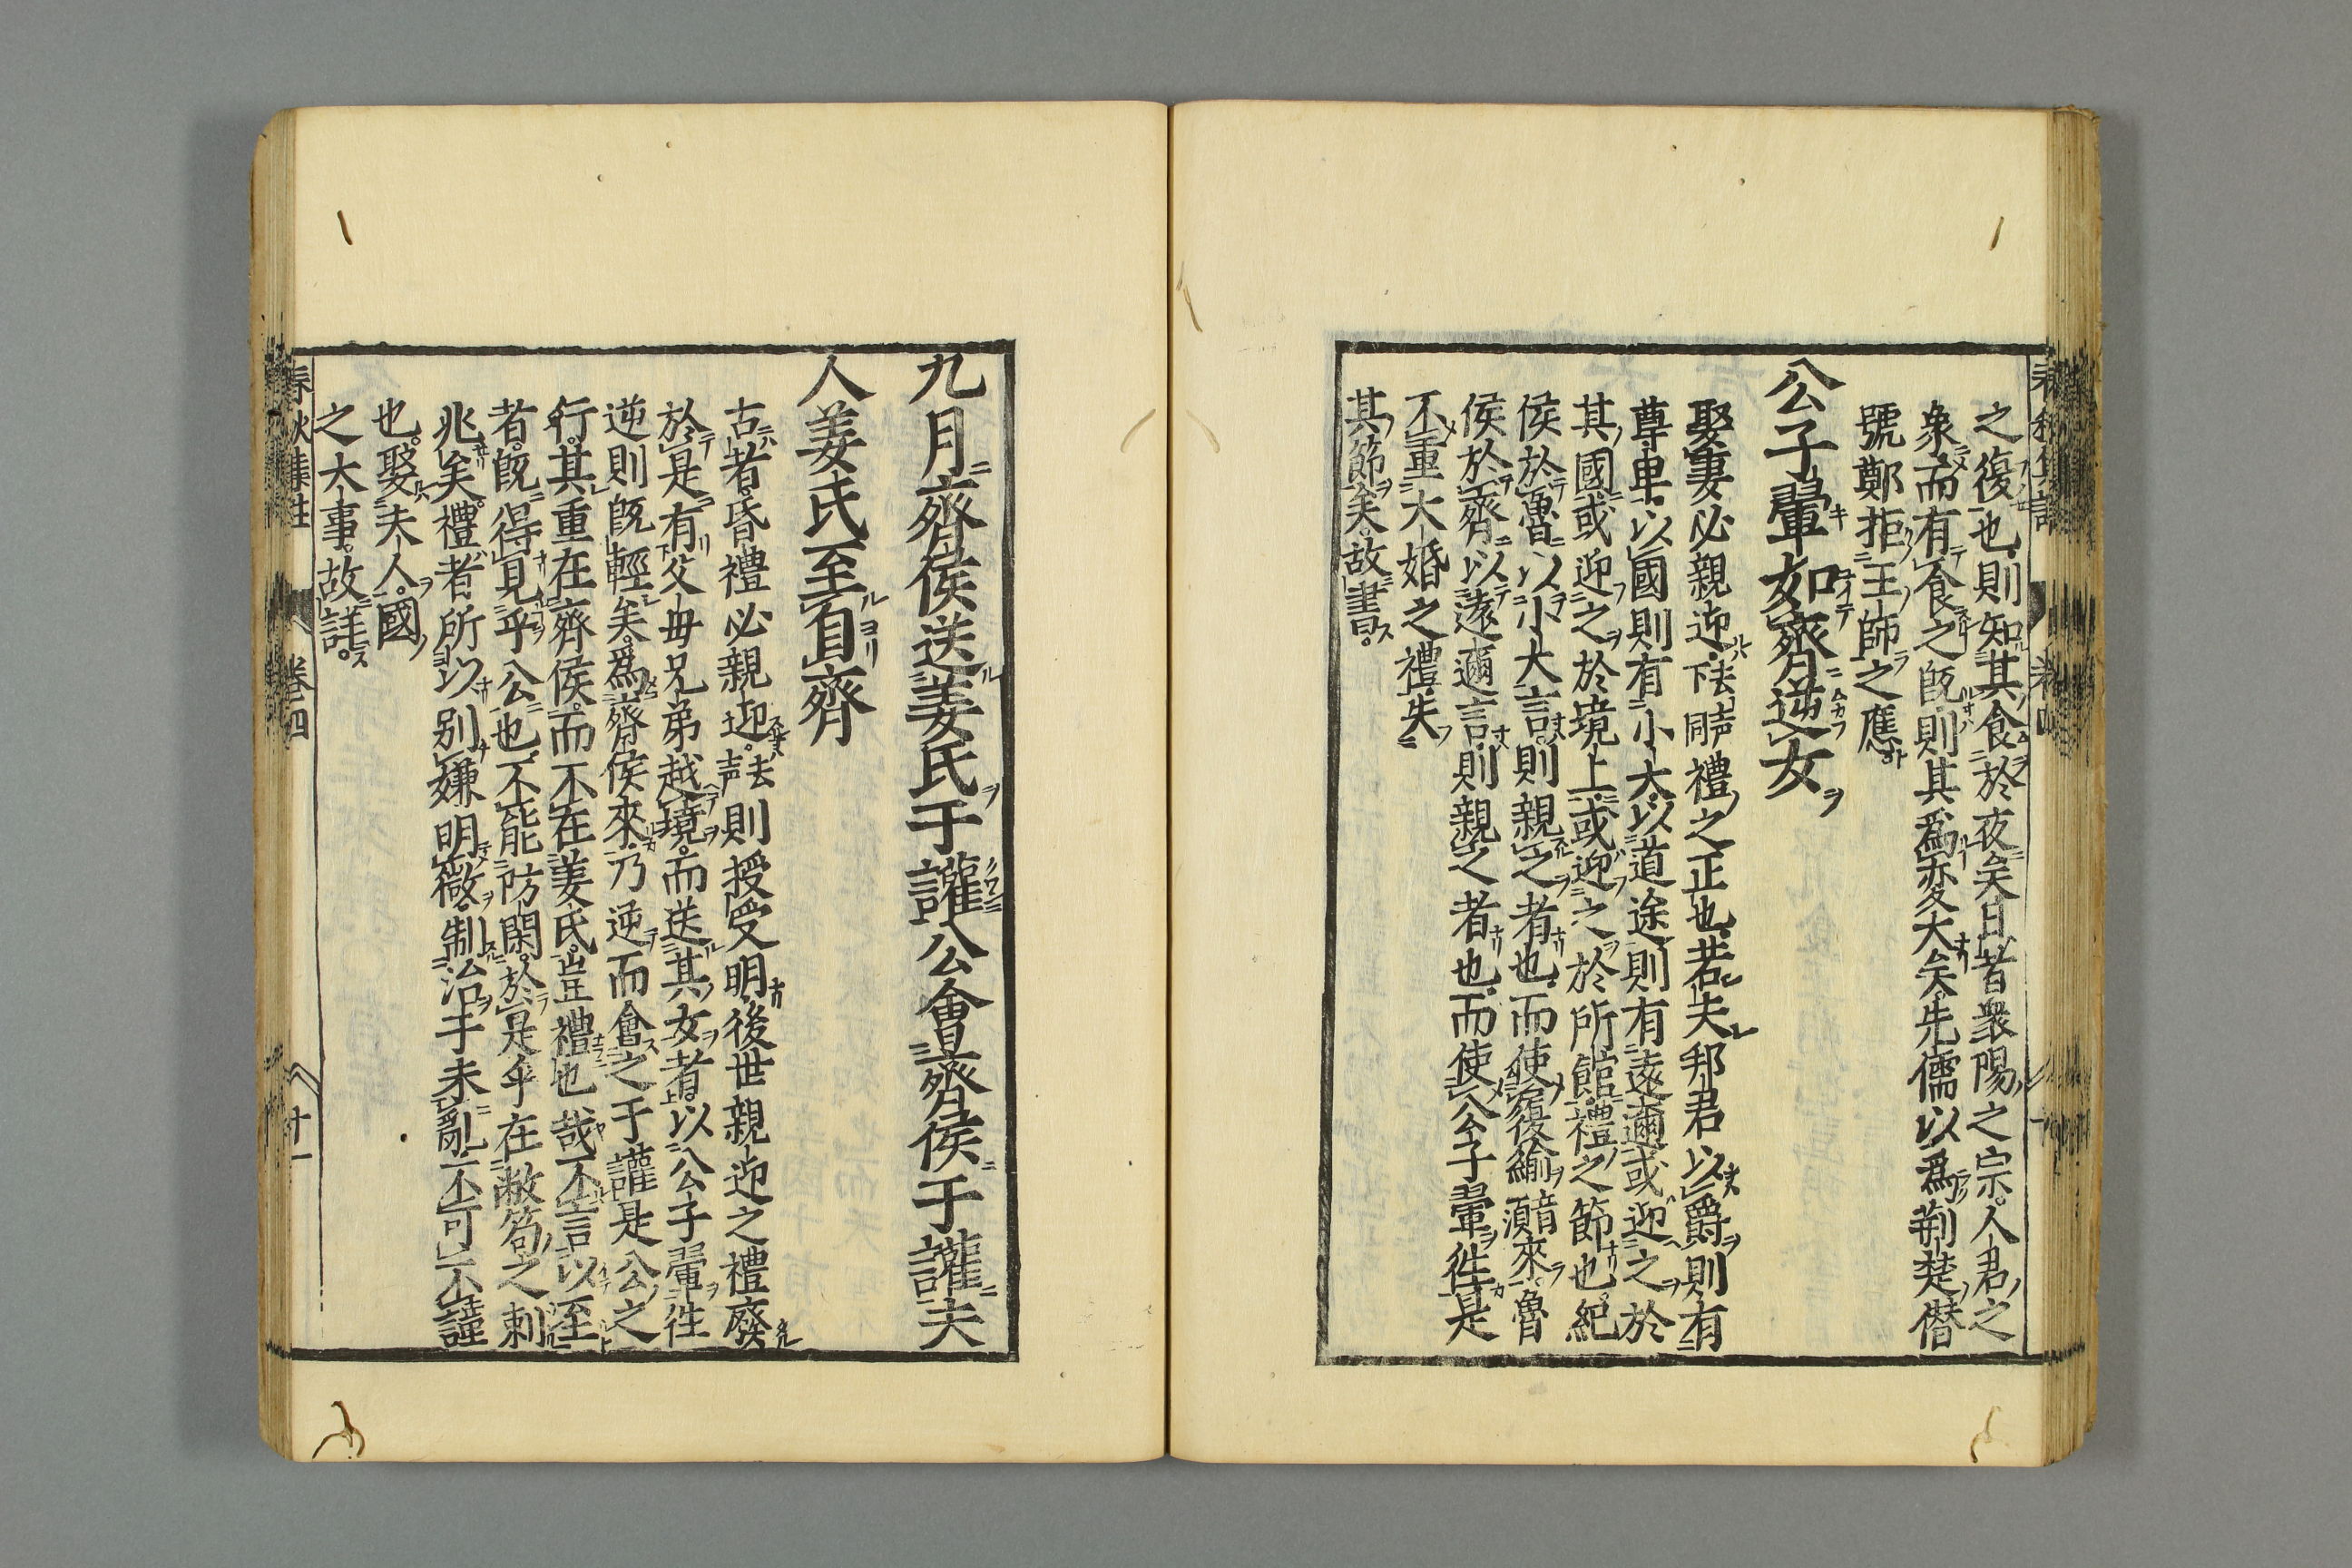 之復也則知其食於夜矣日者衆陽之宗人君之
象而有食之既則其爲変大矣先儒以爲荆楚僭
號鄭拒王師之應
公子翬如齊逆女
娶妻必親迎去声下同禮之正也若夫邦君以爵則有
尊卑以國則有小大以道途則有遠邇或迎之於
其國或迎之於境上或迎之於所館禮之節也紀
侯於魯以小大言則親之者也而使履緰來魯
侯於齊以遠邇言則親之者也而使公子翬徃是
不重大婚之禮失
其節矣故書
九月齊侯送姜氏于讙公會齊侯于讙夫
人姜氏至自齊
古者昏禮必親迎去声則授受明後世親迎之禮廢
於是有父母兄弟越境而送其女者以公子翬徃
逆則既輕矣爲齊侯來乃逆而會之于讙是公之
行其重在齊侯而不在姜氏豈禮也哉不言以至
者既得見乎公也不能防閑於是乎在敝笱之刺
兆矣禮者所以別嫌明微制治于未亂不可不謹
也娶夫人國
之大事故詳
春秋集註 卷四 十一